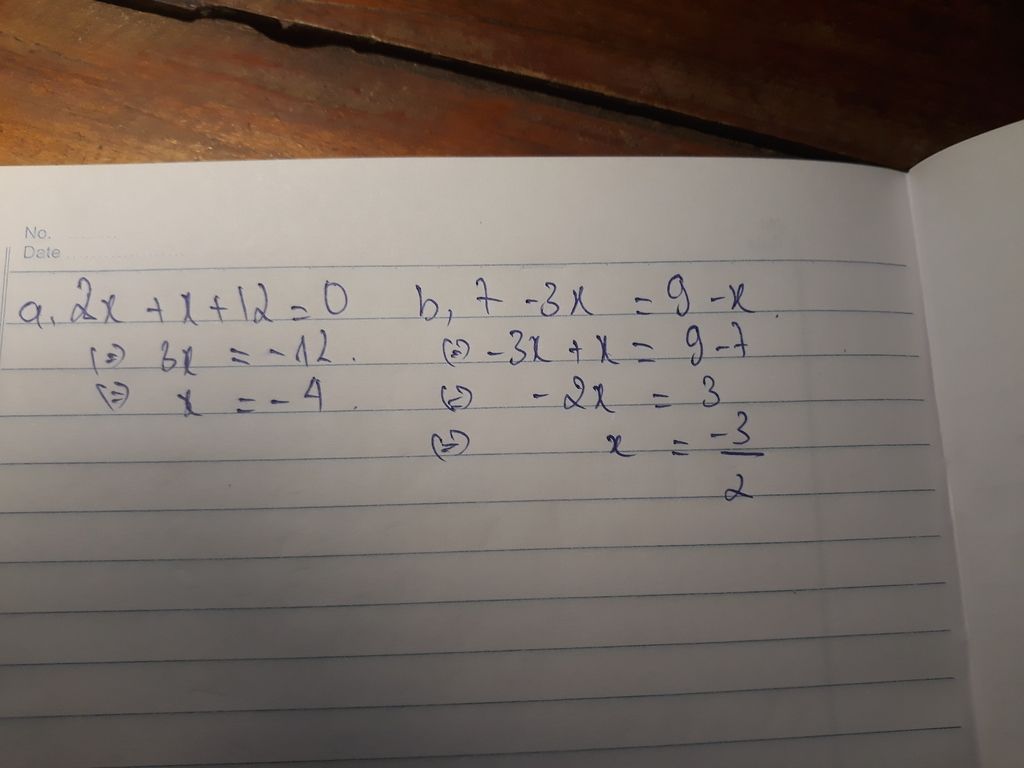 No.
Date
a. 2x + x + 12 = 0
(=) 3x = -12.
(=) x = -4.
b, 7 - 3x = 9 - x.
(=) -3x + x = 9 - 7
(=) - 2x = 3
(=) x = -3/2